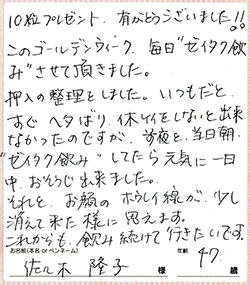 10粒プレゼント、有がとうございました!!
このゴールデンウィーク、毎日"ゼイタク飲
み"させて頂きました。
押入の整理をしました。いつもだと、
すぐヘタばり、休ケイをしないと出来
なかったのですが、前夜と、当日朝、
"ゼイタク飲み"してたら元気に一日
中、おそうじ出来ました。
それと、お顔のホウレイ線が、少し
消えて来た様に思えます。
これからも、飲み続けて行きたいです。
お名前(本名orペンネーム) 年齢
佐々木 隆子 様 47 歳